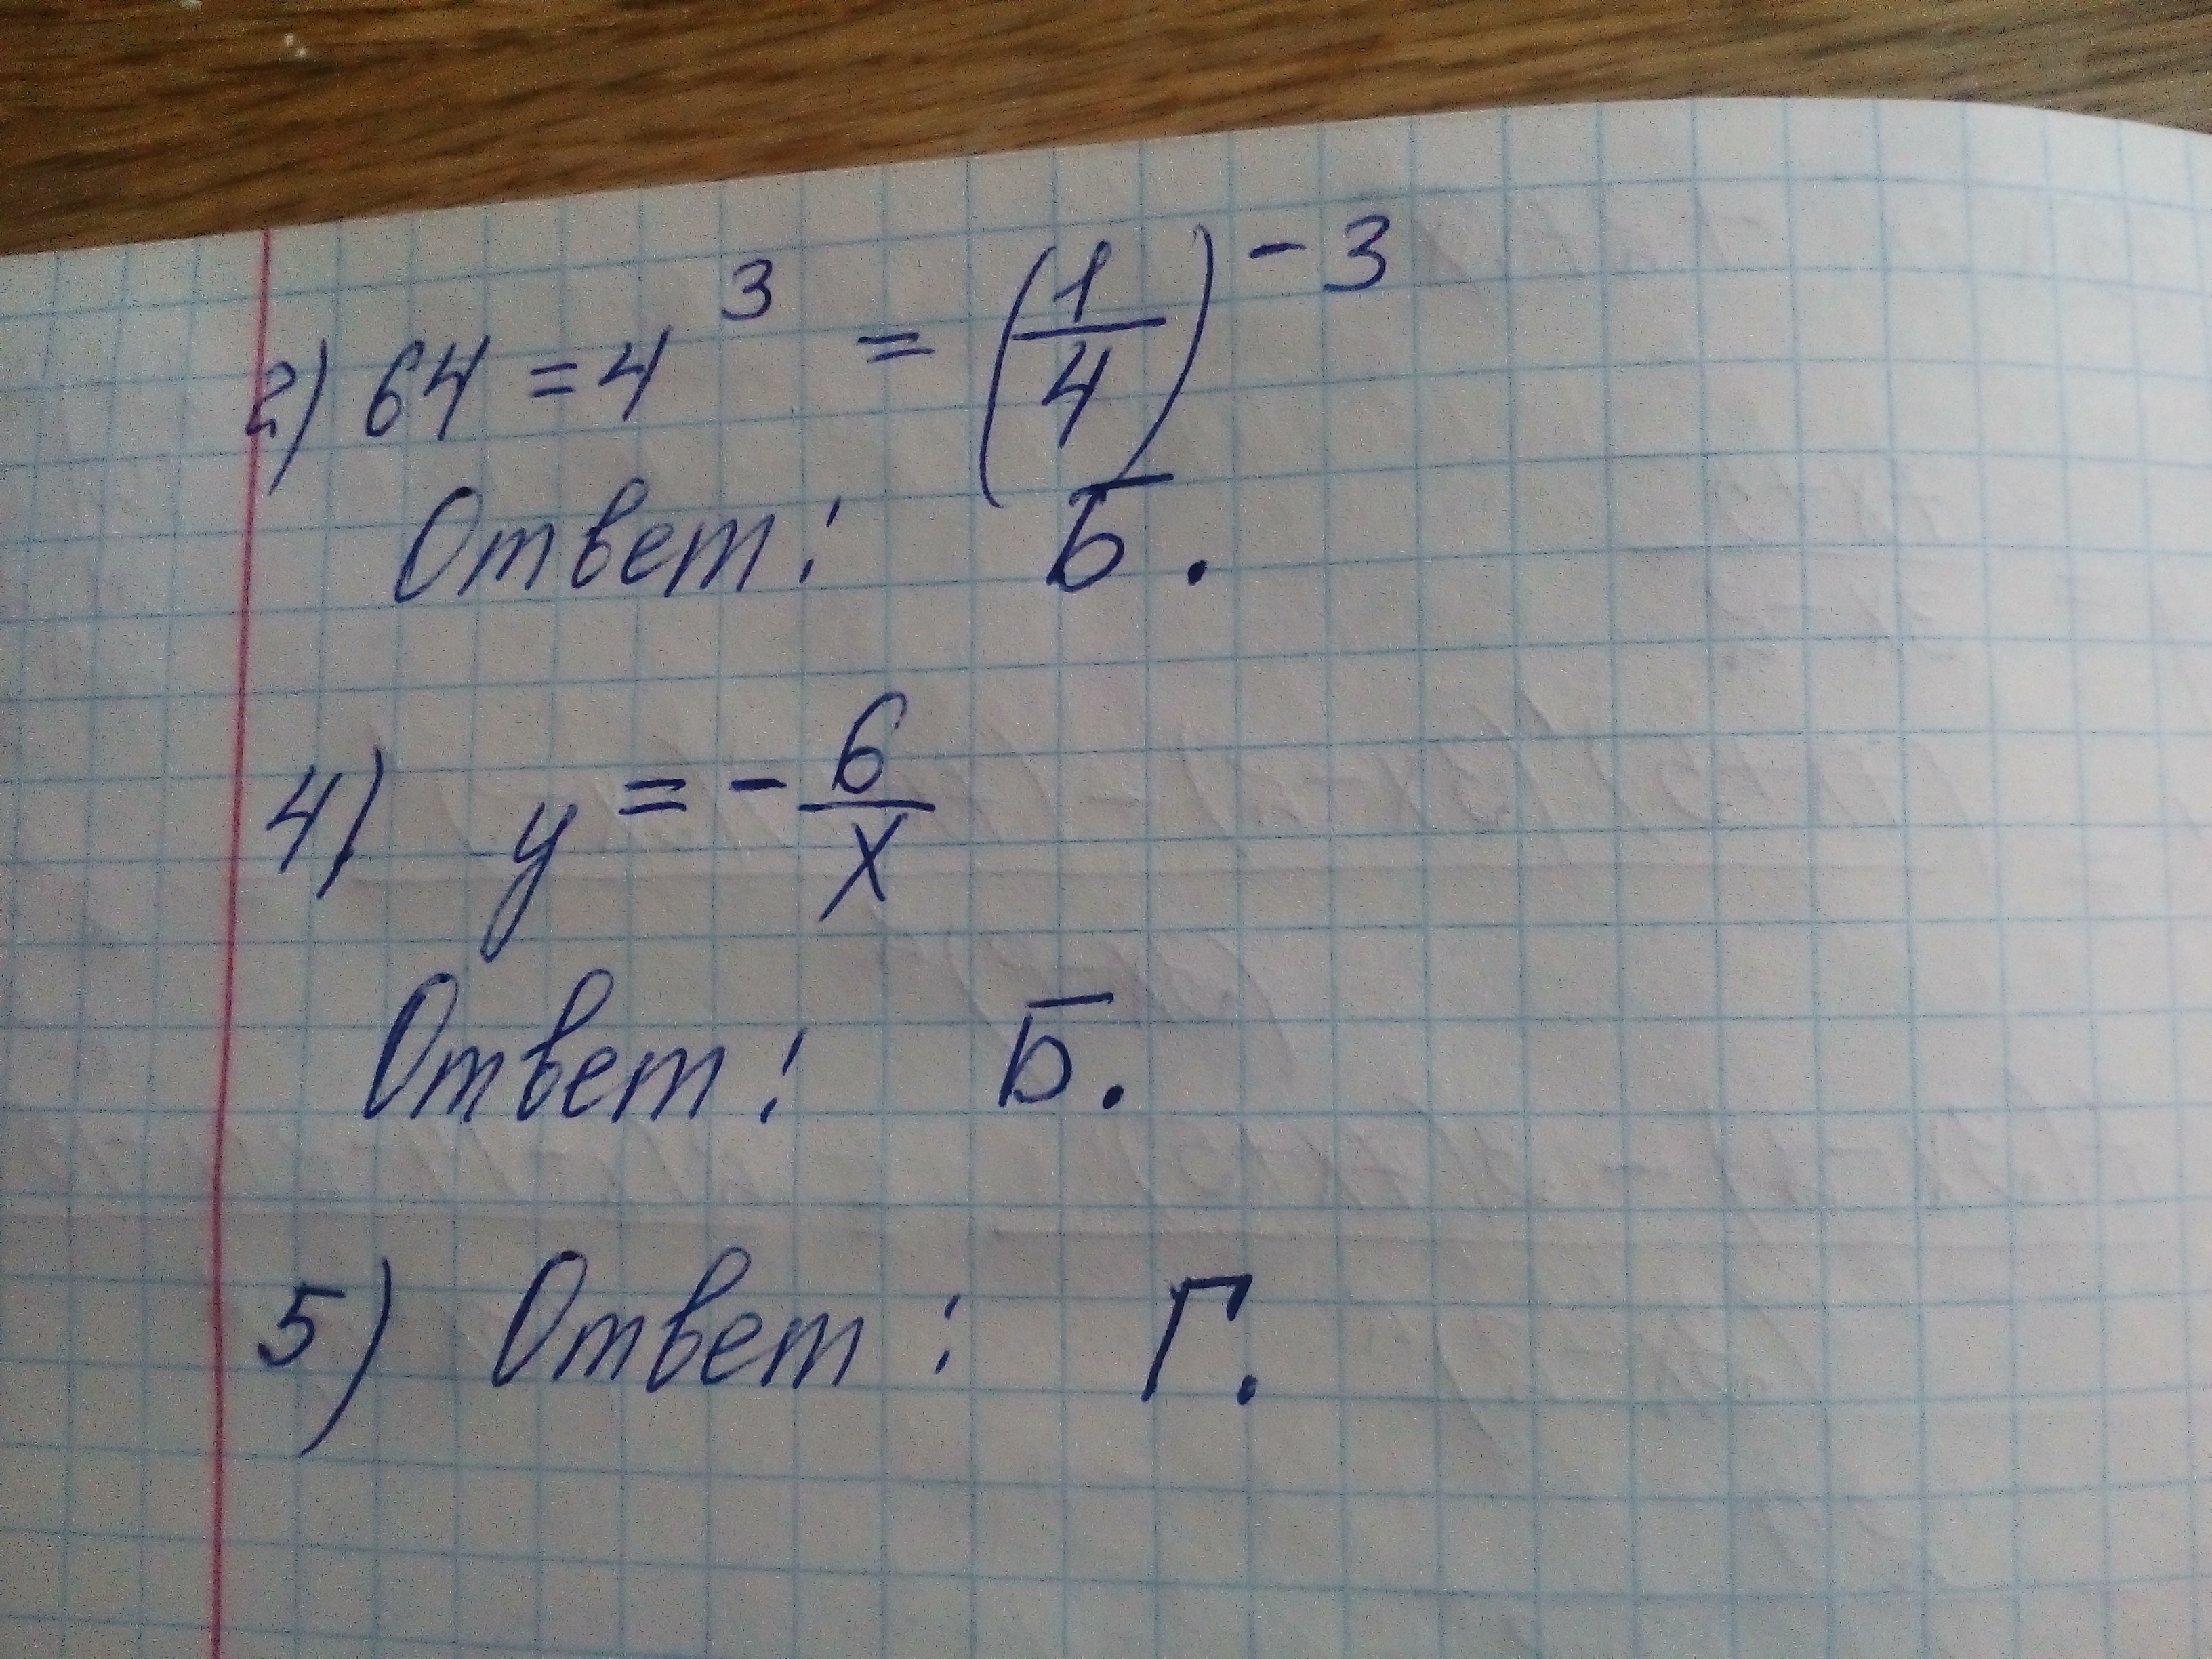 2) 64 = 4³ = (1/4)⁻³
Ответ: Б.
4) y = - 6/x
Ответ: Б.
5) Ответ: Г.